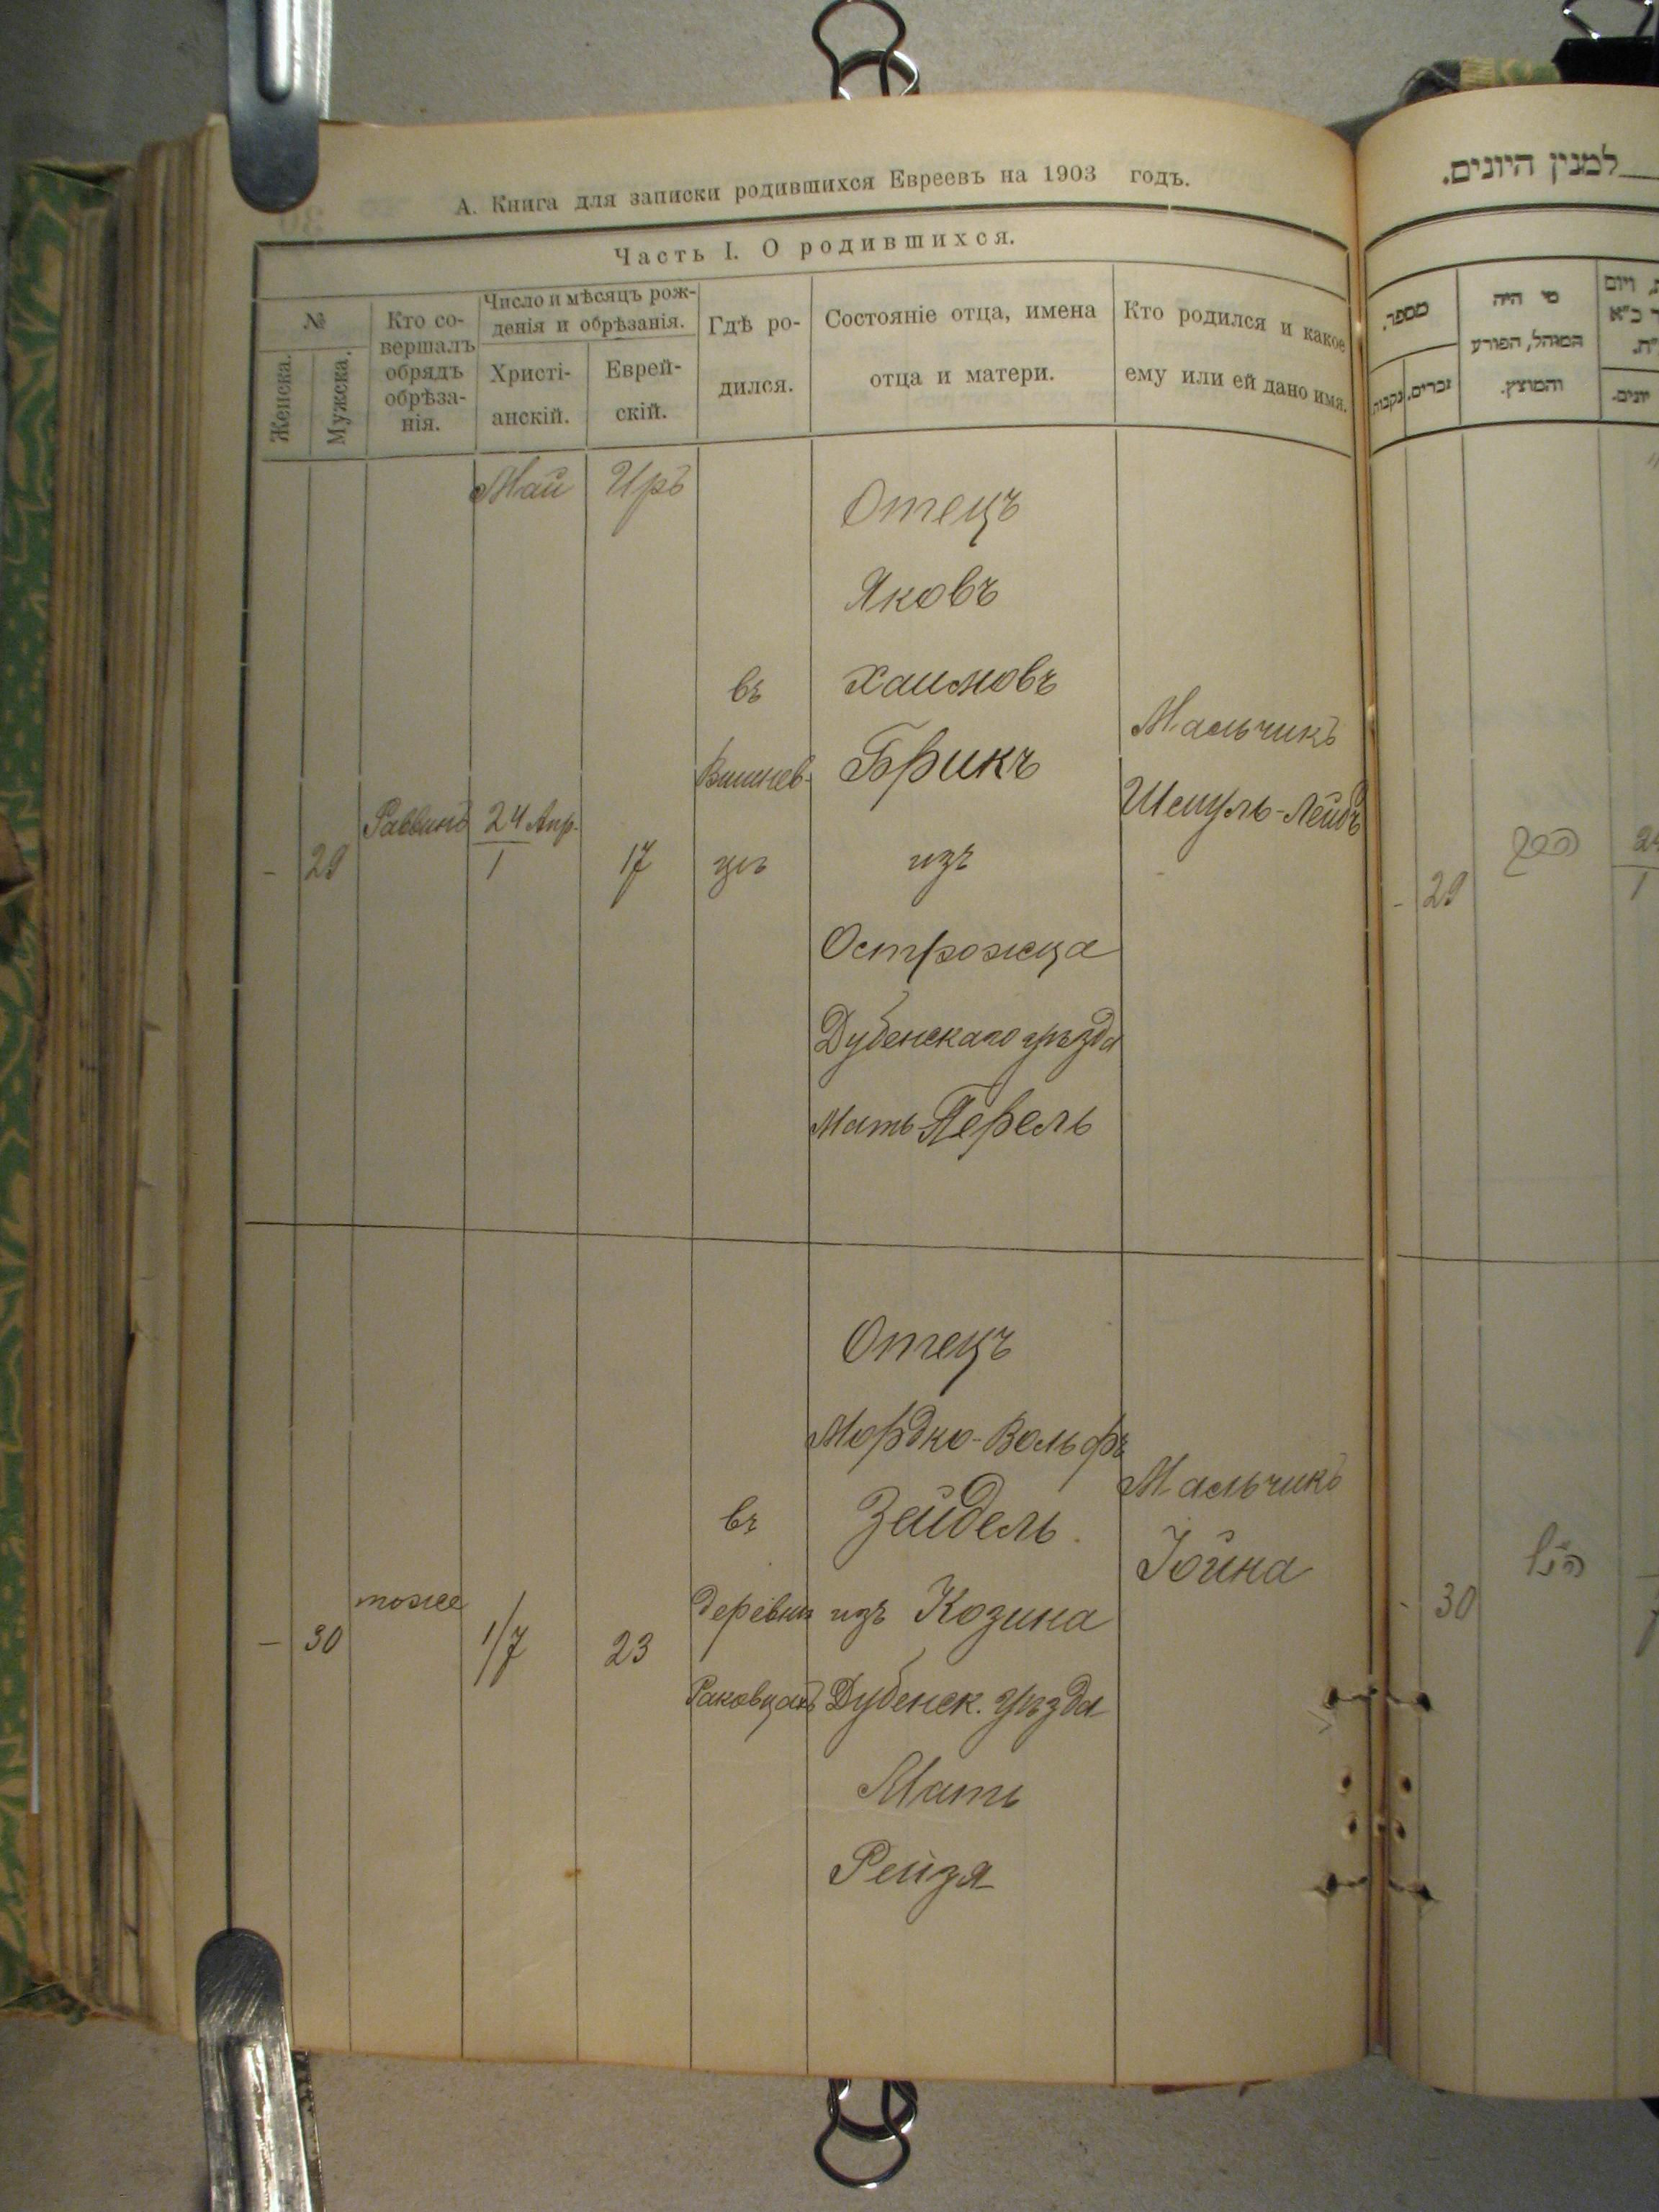 А. Книга для записки родившихся Евреевъ на 1903 годъ.
Часть I. О родившихся.
№
Женска.
Мужска.
Кто со-
вершалъ
обрядъ
обрѣза-
нія.
Число и мѣсяцъ рож-
денія и обрѣзанія.
Христі-
анскій.
Еврей-
скій.
Гдѣ ро-
дился.
Состояніе отца, имена
отца и матери.
Кто родился и какое
ему или ей дано имя.
Май
Иръ
- 29
Раввинъ
24 Апр.
1
17
въ
Вишнев-
цѣ
Отецъ
Яковъ
Хаимовъ
Брикъ
изъ
Острожца
Дубенскаго уѣзда
Мать Перель
Мальчикъ
Шмуль-Лейбъ
- 30
тоже
1/7
23
въ
деревнѣ
Раковцахъ
Отецъ
Мордко-Вольфъ
Зейдель
изъ Козина
Дубенск. уѣзда
Мать
Рейзя
Мальчикъ
Іойна
למנין היונים.
מספר.
נקבות.
זכרים.
מי היה
המוהל, הפורע
והמוצץ.
ויום
יונים.
- 29
24
1
- 30
הנ"ל